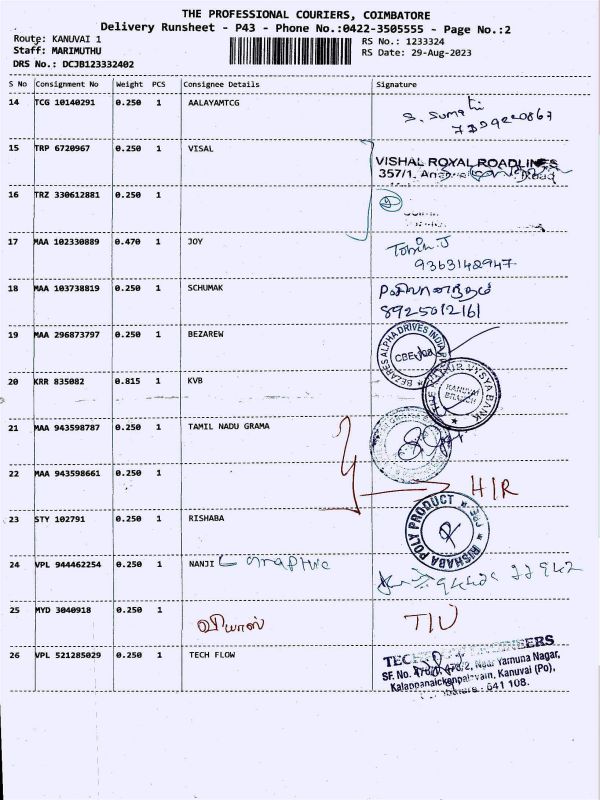 THE PROFESSIONAL COURIERS, COIMBATORE
Delivery Runsheet - P43 - Phone No.:0422-3505555 - Page No.:2
Route: KANUVAI 1
Staff: MARIMUTHU
DRS No.: DCJB123332402
RS No.: 1233324
RS Date: 29-Aug-2023
S No Consignment No Weight PCS Consignee Details Signature
14 TCG 10140291 0.250 1 AALAYAMTCG
S. Sumathi
15 TRP 6720967 0.250 1 VISAL
VISHAL ROYAL ROADLINES
357/1,
Road
16 TRZ 330612881 0.250 1
17 MAA 102330889 0.470 1 JOY
Tobin J
9363142947
18 MAA 103738819 0.250 1 SCHUMAK
8925012161
19 MAA 296873797 0.250 1 BEZAREW
BEZARES ALPHA DRIVES INDIA
CBE
20 KRR 835082 0.815 1 KVB
THE KARUR VYSYA BANK
KANUVAI
BRANCH
21 MAA 943598787 0.250 1 TAMIL NADU GRAMA
22 MAA 943598661 0.250 1
H/R
23 STY 102791 0.250 1 RISHABA
RISHABA POLY PRODUCT
24 VPL 944462254 0.250 1 NANJI Graphic
25 MYD 3040918 0.250 1
வியாஸ்
T/U
26 VPL 521285029 0.250 1 TECH FLOW
TECH ENGINEERS
SF. No. 478/2, Near Yamuna Nagar,
Kalappanaickenpalayam, Kanuvai (Po),
641 108.